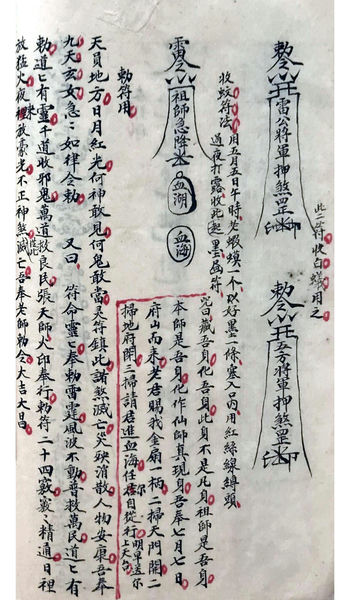 此二符收白蟻用之
敕令
雷公將軍押煞罡
印
敕令
五方將軍押煞罡
印
收蚊符法 用五月五日午時尋蝦蟆一个以好墨一條塞入口內用紅絲線縛頭
過夜打露收此起墨畵符
雷令
祖師急降
血湖
血海
咒曰藏吾身化吾身此身不是凡身祖師是吾身
本師是吾身化作仙師真現身吾奉七月七日
府山而來老君賜我金扇一柄一掃天門開二
掃地府開三掃請君進血海任君自從行明早送你上天台
勅符用
天員地方日月紅光何神敢見何鬼敢當灵符鎮此諸煞滅亡災殃消散人物安康吾奉
九天玄女急〻如律令勅 又曰 符命靈〻奉勅雷霆風波不動普救萬民道〻有
勅道〻有靈千道收邪鬼萬道救良民張天師火印奉行勅符二十四竅〻精通日裡
放猛火夜裡放豪光不正神煞從此滅亡吾奉老師勅令大吉大昌